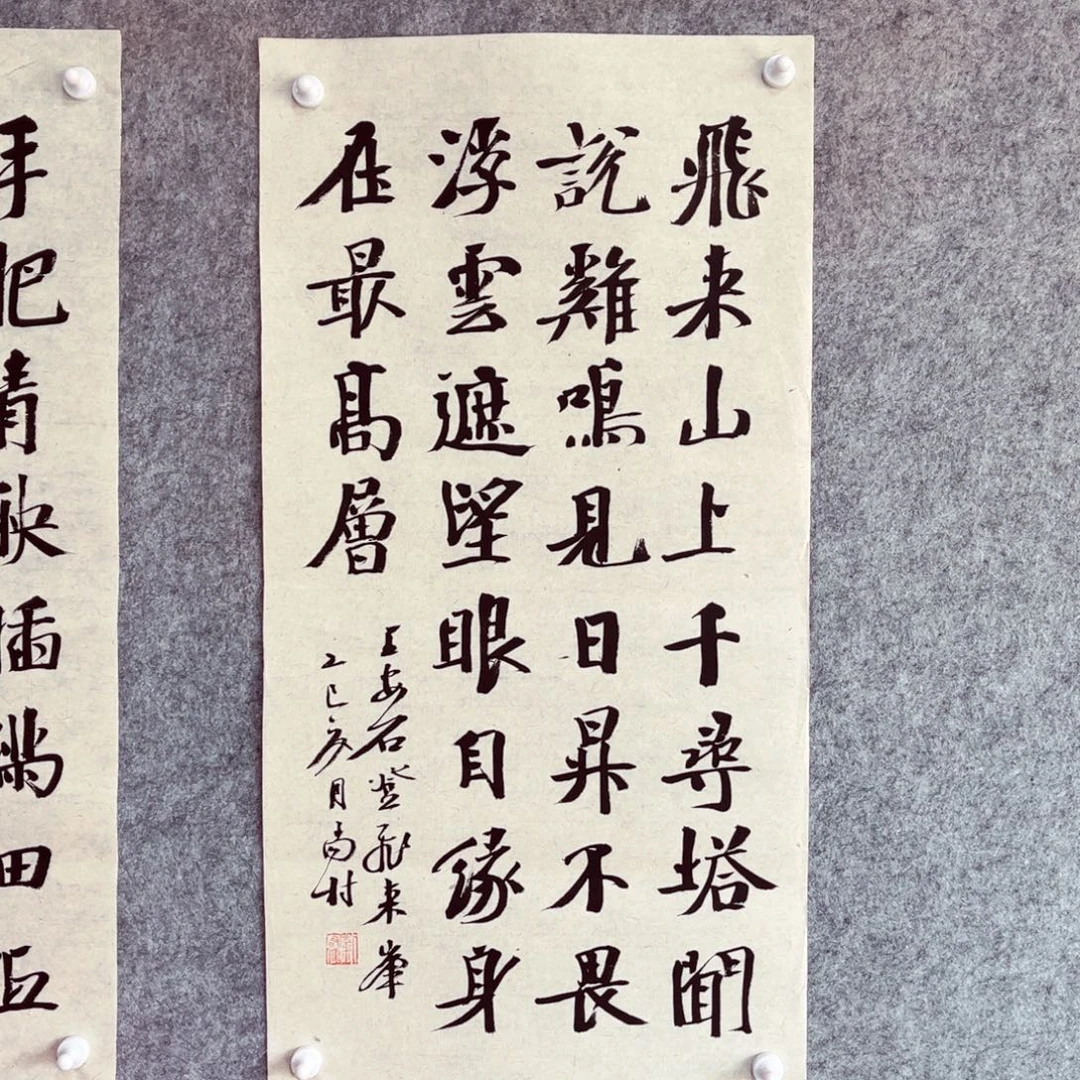 飛来山上千尋塔聞
説雞鳴見日昇不畏
浮雲遮望眼自緣身
在最髙層
王安石登飛来峯
乙巳亥月村
手把青秧插滿田低